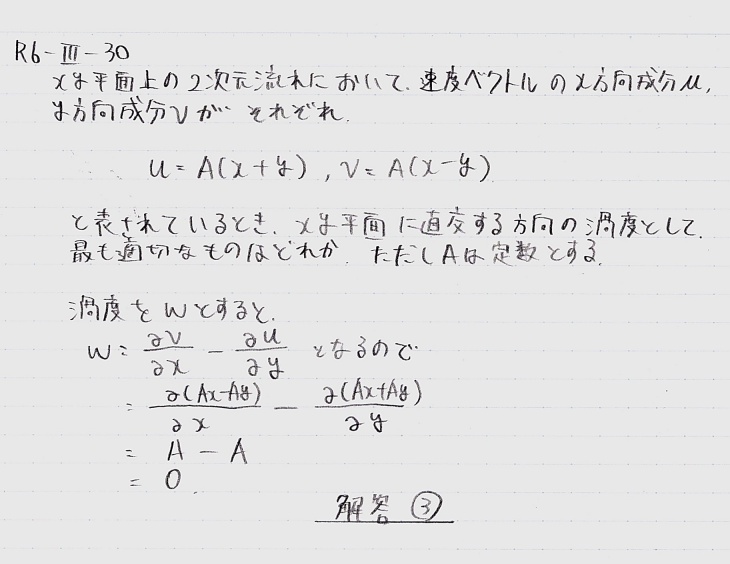 R6-Ⅲ-30
xy平面上の2次元流れにおいて、速度ベクトルのx方向成分u,
y方向成分vが それぞれ、
u = A(x+y) , v = A(x-y)
と表されているとき、xy平面に直交する方向の渦度として、
最も適切なものはどれか。ただしAは定数とする。
渦度をwとすると、
w = ∂v/∂x - ∂u/∂y となるので
= ∂(Ax-Ay)/∂x - ∂(Ax+Ay)/∂y
= A - A
= 0
解答 ③